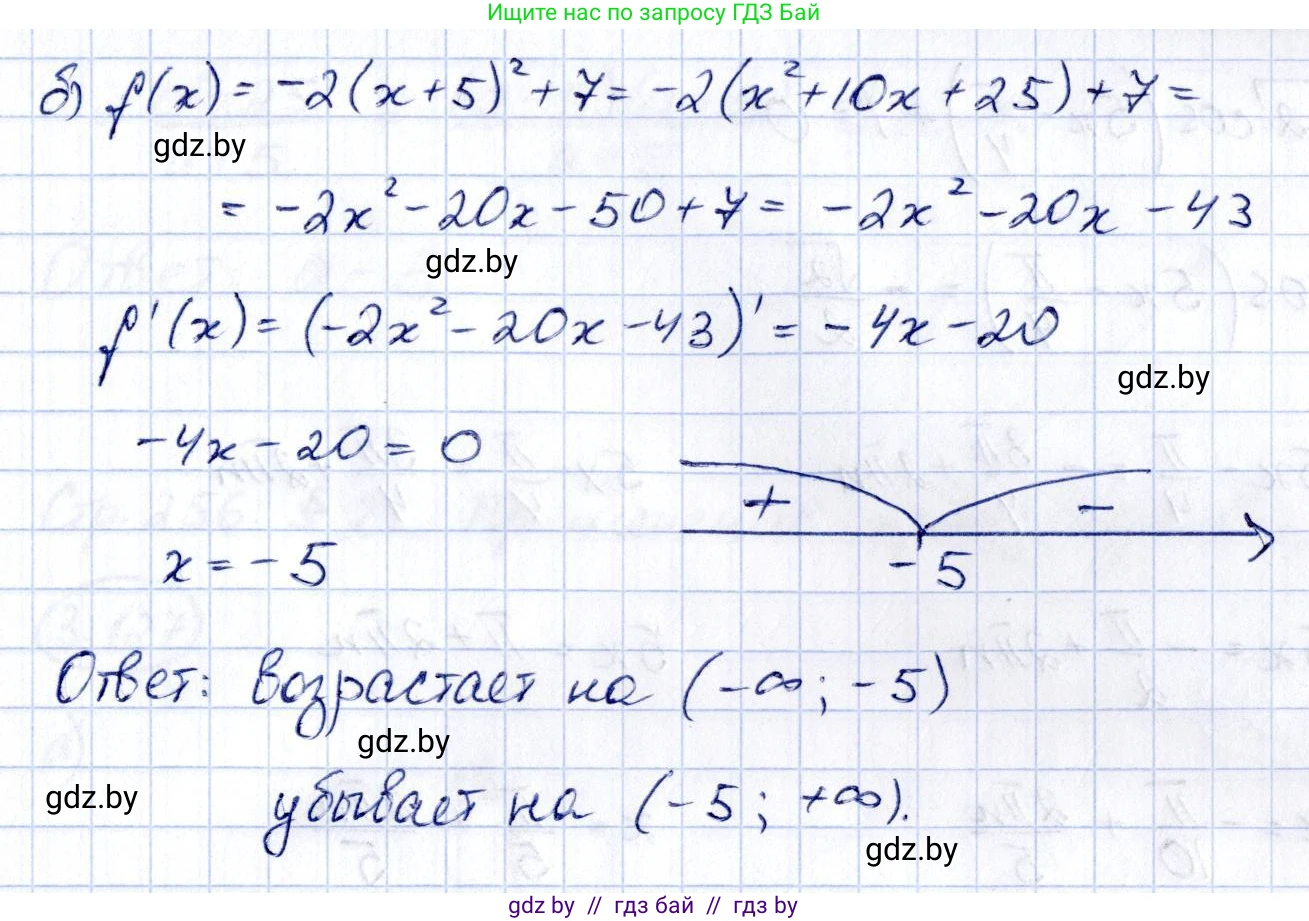 Ищите нас по запросу ГДЗ Бай
б) f(x) = -2(x+5)² + 7 = -2(x² + 10x + 25) + 7 =
gdz.by
= -2x² - 20x - 50 + 7 = -2x² - 20x - 43
gdz.by
f'(x) = (-2x² - 20x - 43)' = -4x - 20
gdz.by
-4x - 20 = 0
+ -
x = -5
-5
Ответ: возрастает на (-∞; -5)
gdz.by
убывает на (-5; +∞).
gdz.by
gdz.by
gdz by // гдз бай // гдз by